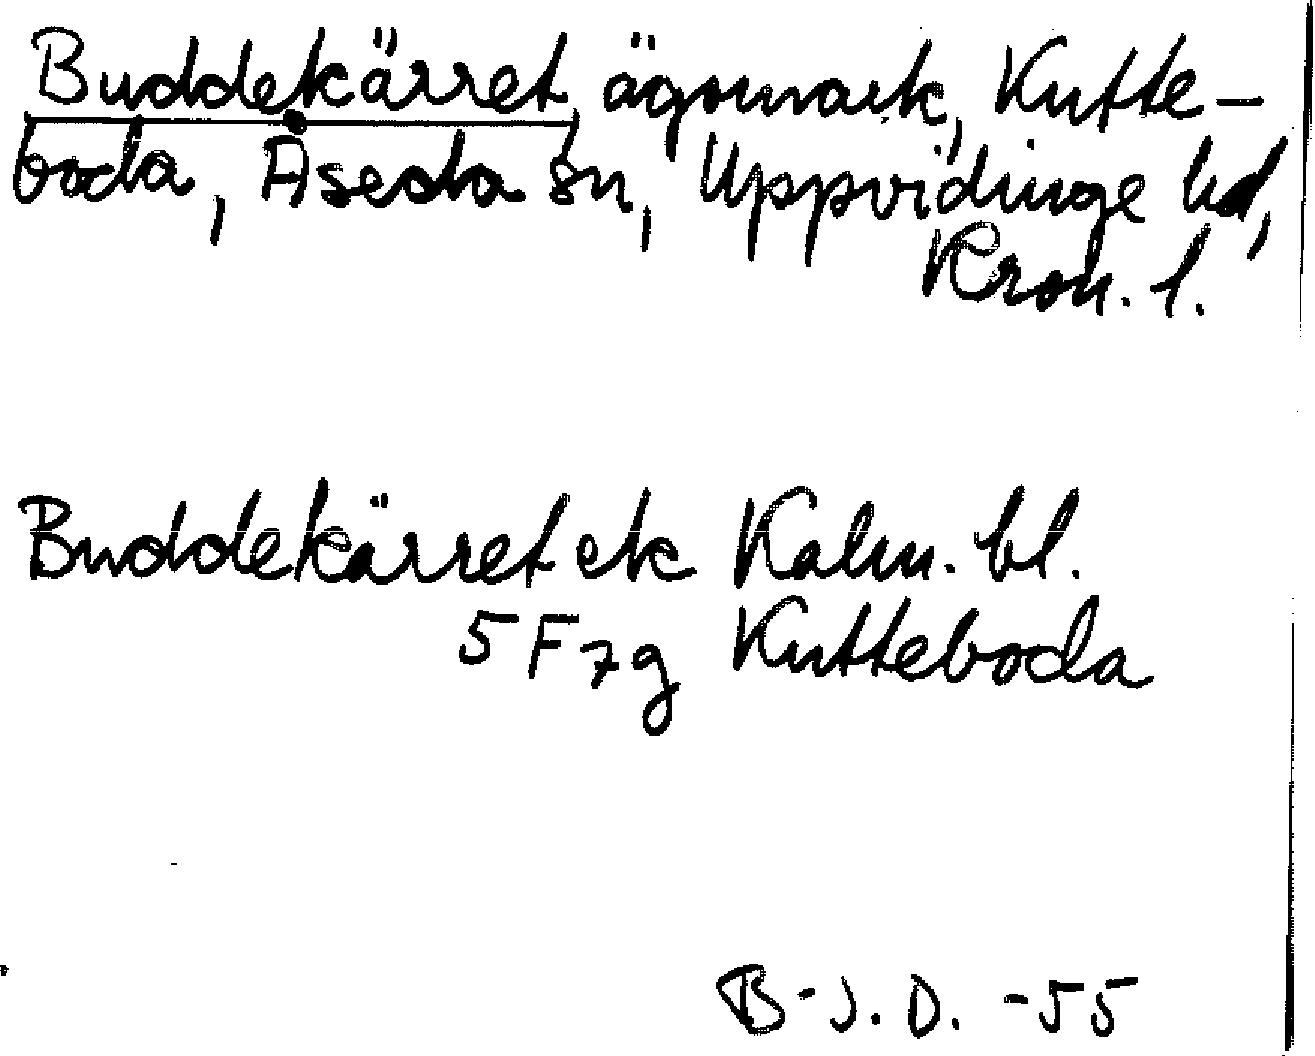 Buddekärret, ägomark, Kutte-
boda, Åseda sn, Uppvidinge hd,
Kron. l.
Buddekärret ek Kalm. bl.
5 F 7 g Kutteboda
B-J. D. -55